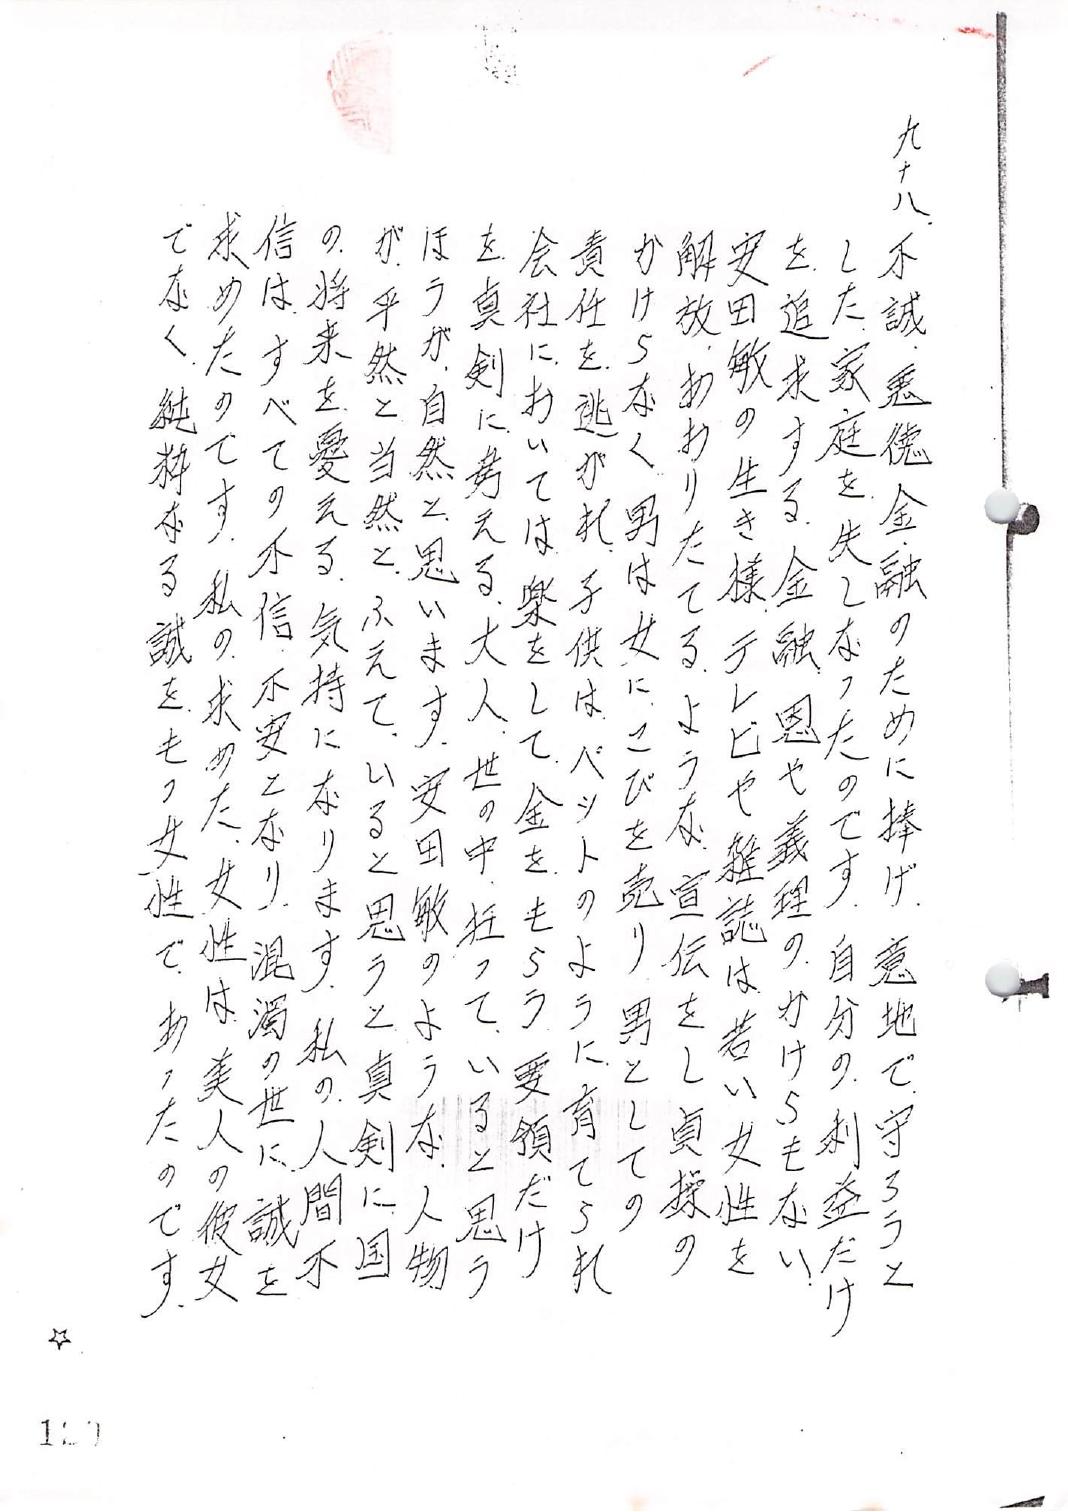 九十八.不誠.悪徳金融のために捧げ.意地で.守ろうと
した.家庭を.失しなったのです.自分の.利益だけ
を.追求する.金融.恩や義理の.かけらもない.
安田敏の生き様.テレビや雑誌は.若い女性を
解放.あおりたてる.ような.宣伝をし貞操の
かけらなく男は女にこびを売り.男としての
責任を逃がれ.子供は.ペットのように育てられ
会社に.おいては.楽をして.金を.もらう.要領だけ
を.真剣に.考える.大人.世の中.狂って.いると思う
ほうが.自然と.思います.安田敏のような.人物
が.平然と当然と.ふえて.いると思うと.真剣に.国
の.将来を.憂える.気持になります.私の.人間不
信は.すべての不信.不安となり.混濁の世に.誠を
求めたのです.私の.求めた.女性は.美人の彼女
でなく.純粋なる誠をもつ女性で.あったのです.
☆